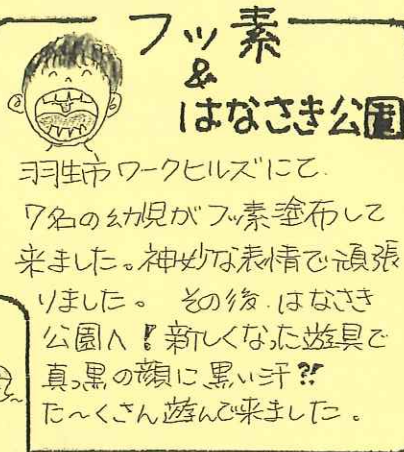 フッ素
&
はなさき公園
羽生市ワークヒルズにて.
7名の幼児がフッ素塗布して
来ました。神妙な表情で頑張
りました。 その後.はなさき
公園へ!新しくなった遊具で
真っ黒の顔に黒い汗⁇
た〜くさん遊んで来ました。